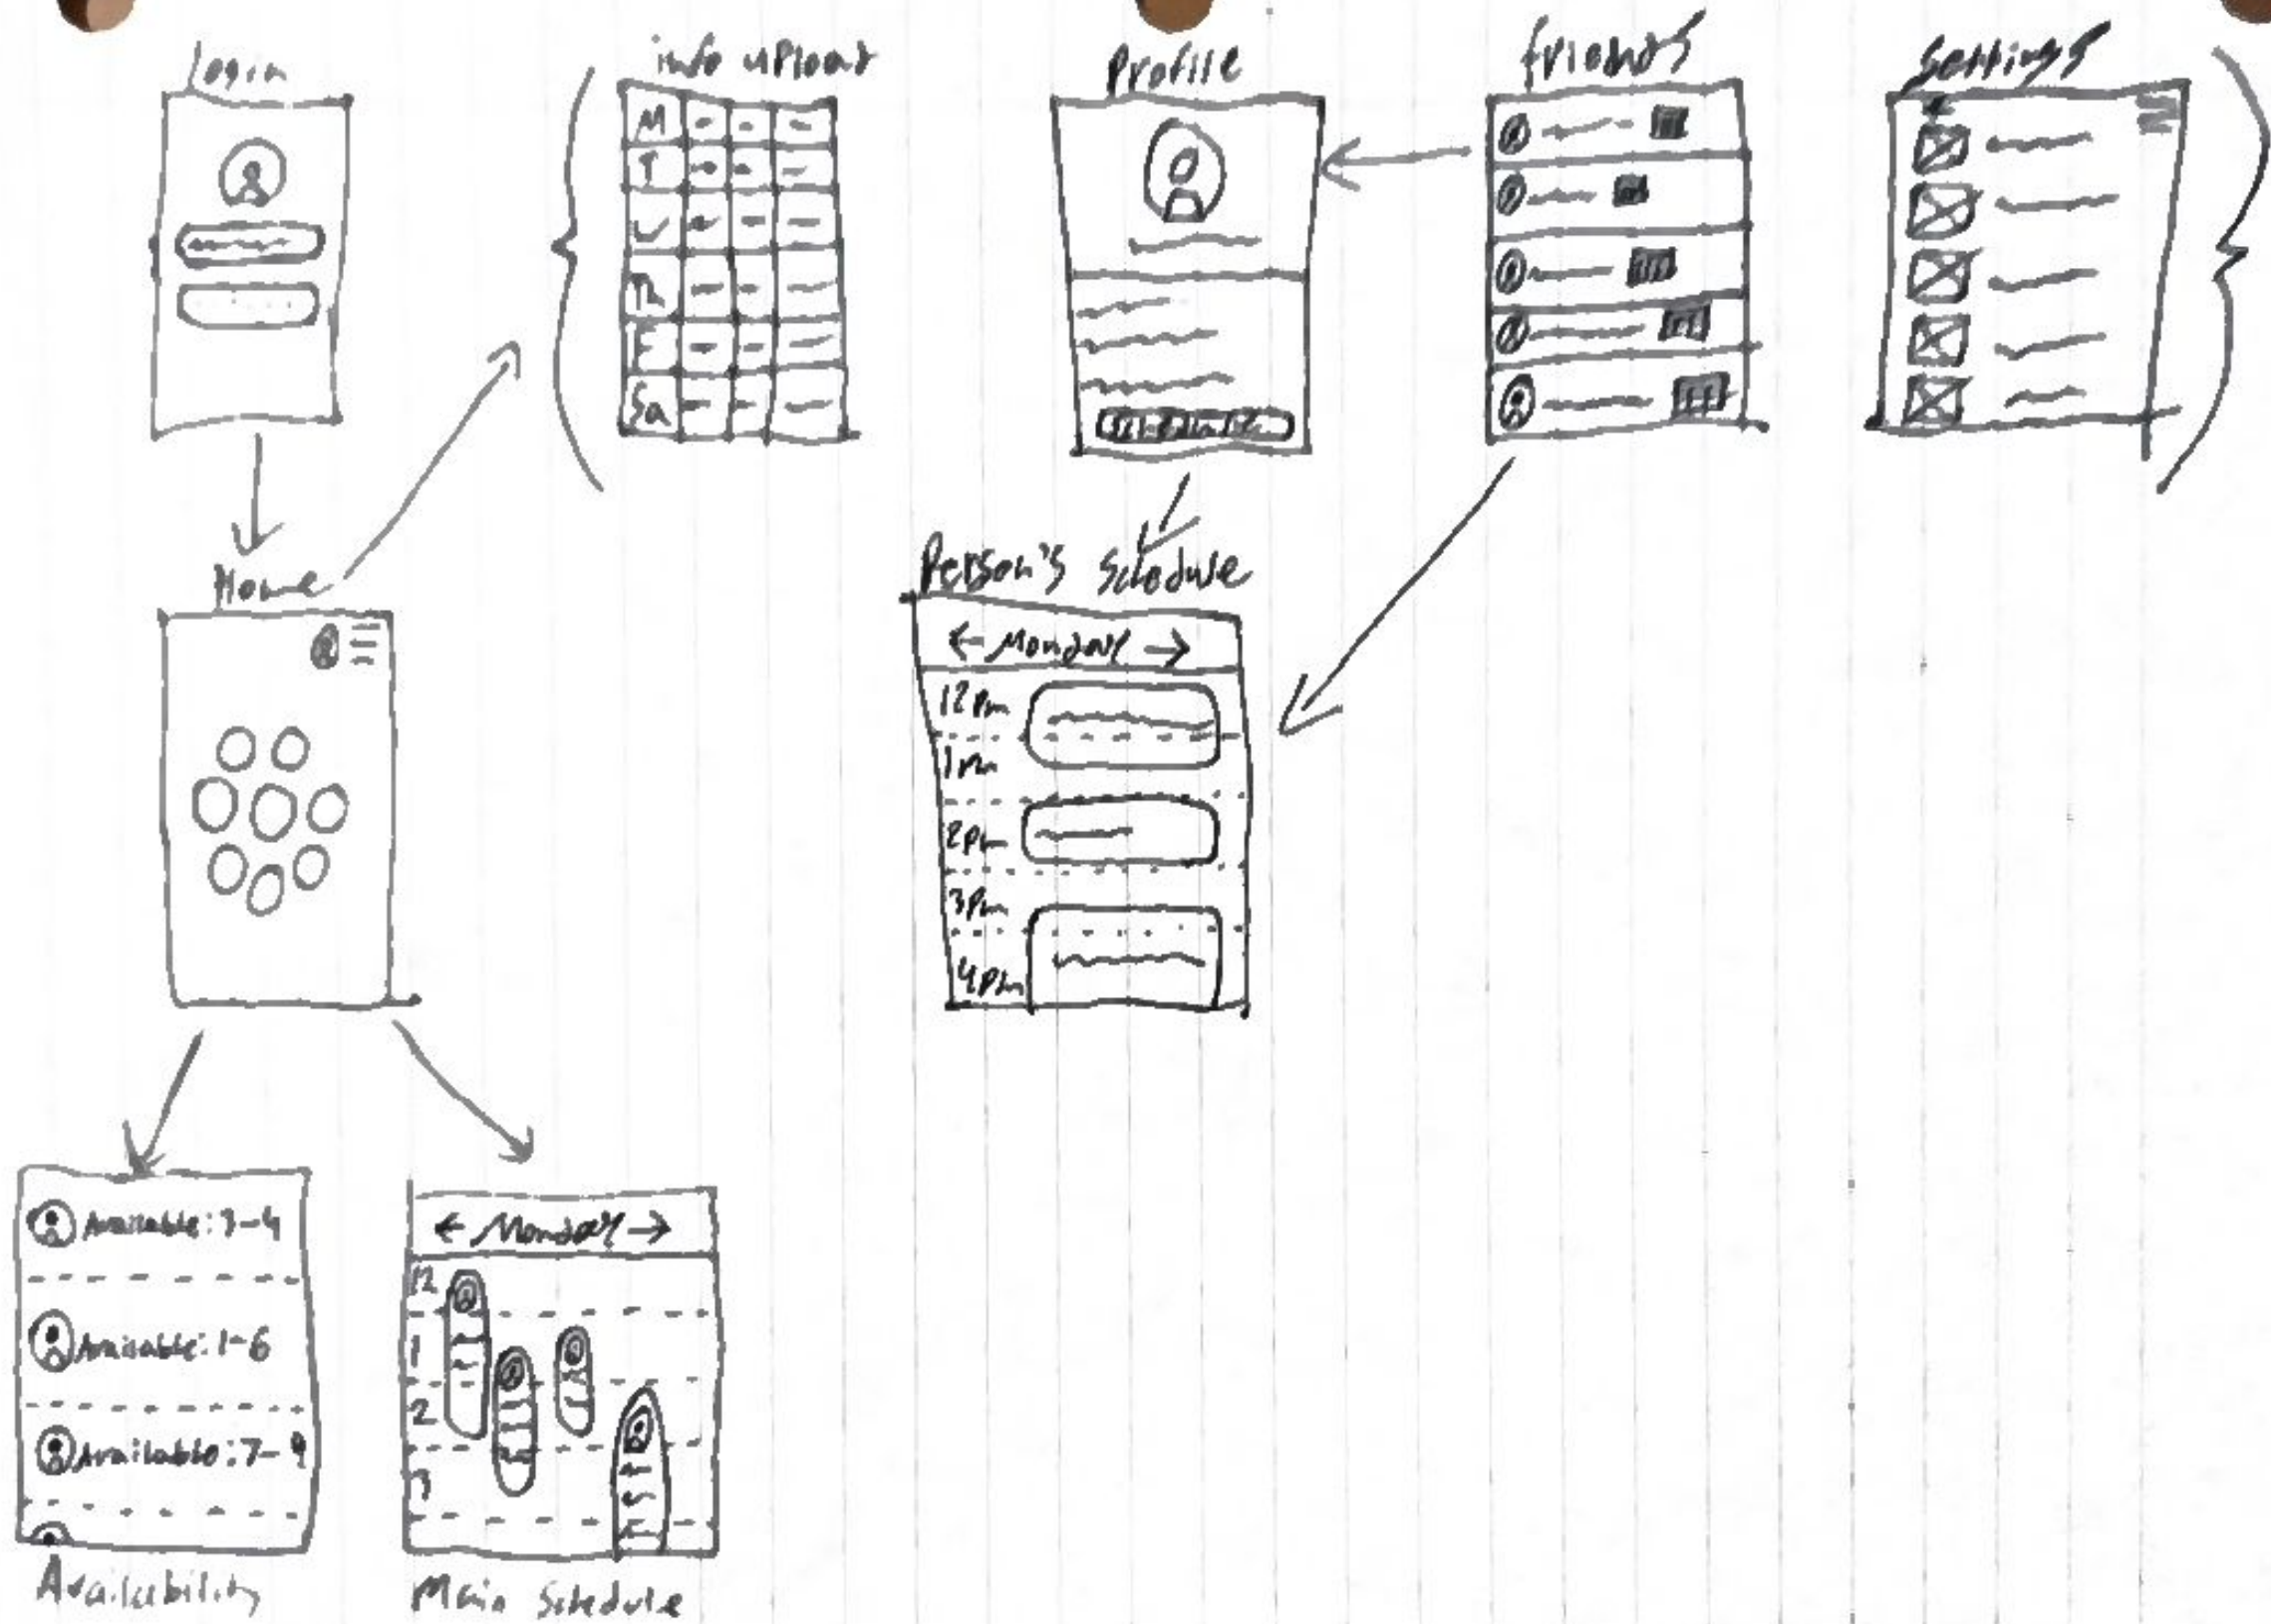 Login
info upload
Profile
friends
Settings
M
T
W
Th
F
Sa
Home
Person's Schedule
← Monday →
12 pm
1 pm
2 pm
3 pm
4 pm
Available: 3-4
Available: 1-6
Available: 7-9
Availability
← Monday →
12
1
2
3
Main Schedule